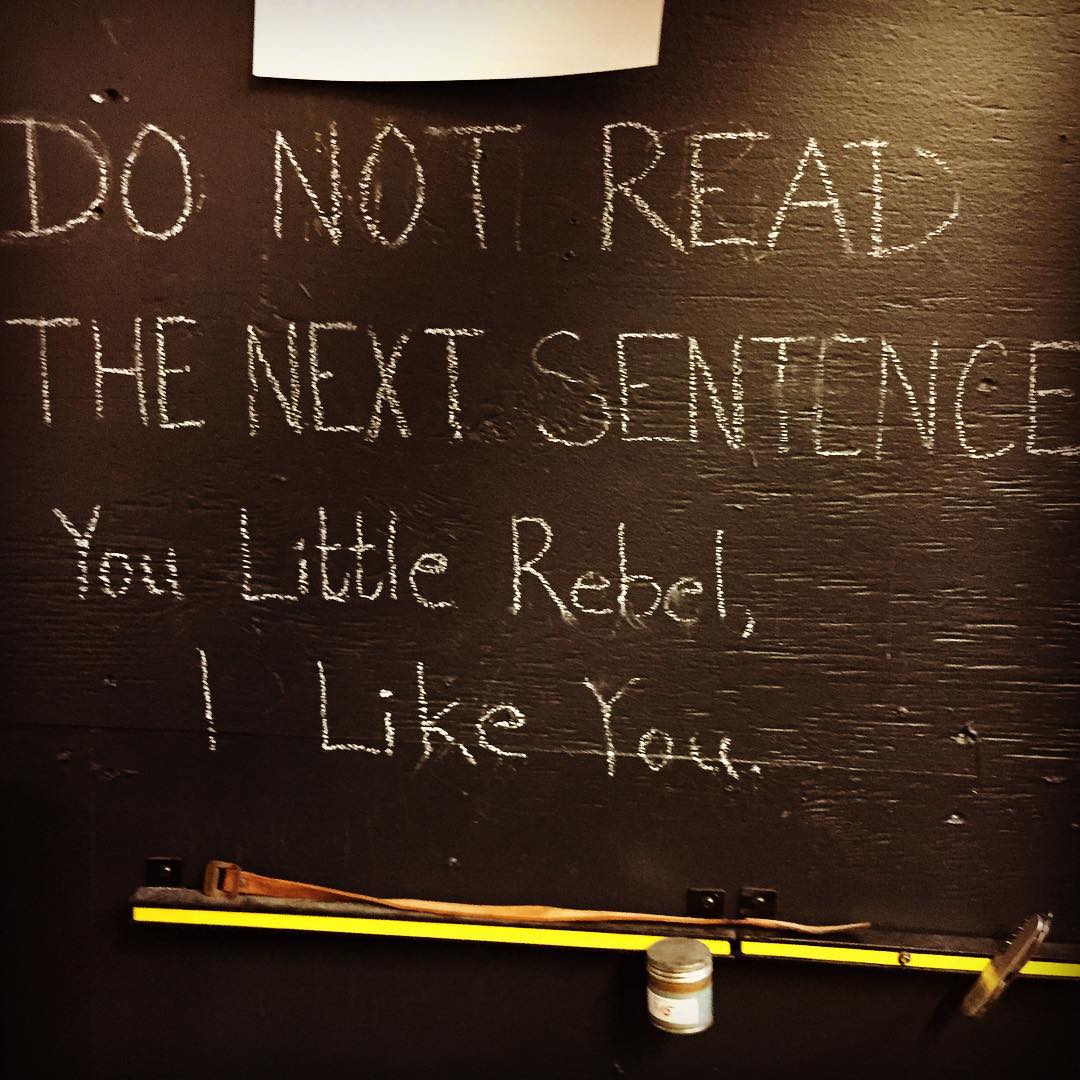 DO NOT READ
THE NEXT SENTENCE
You Little Rebel,
I Like You.